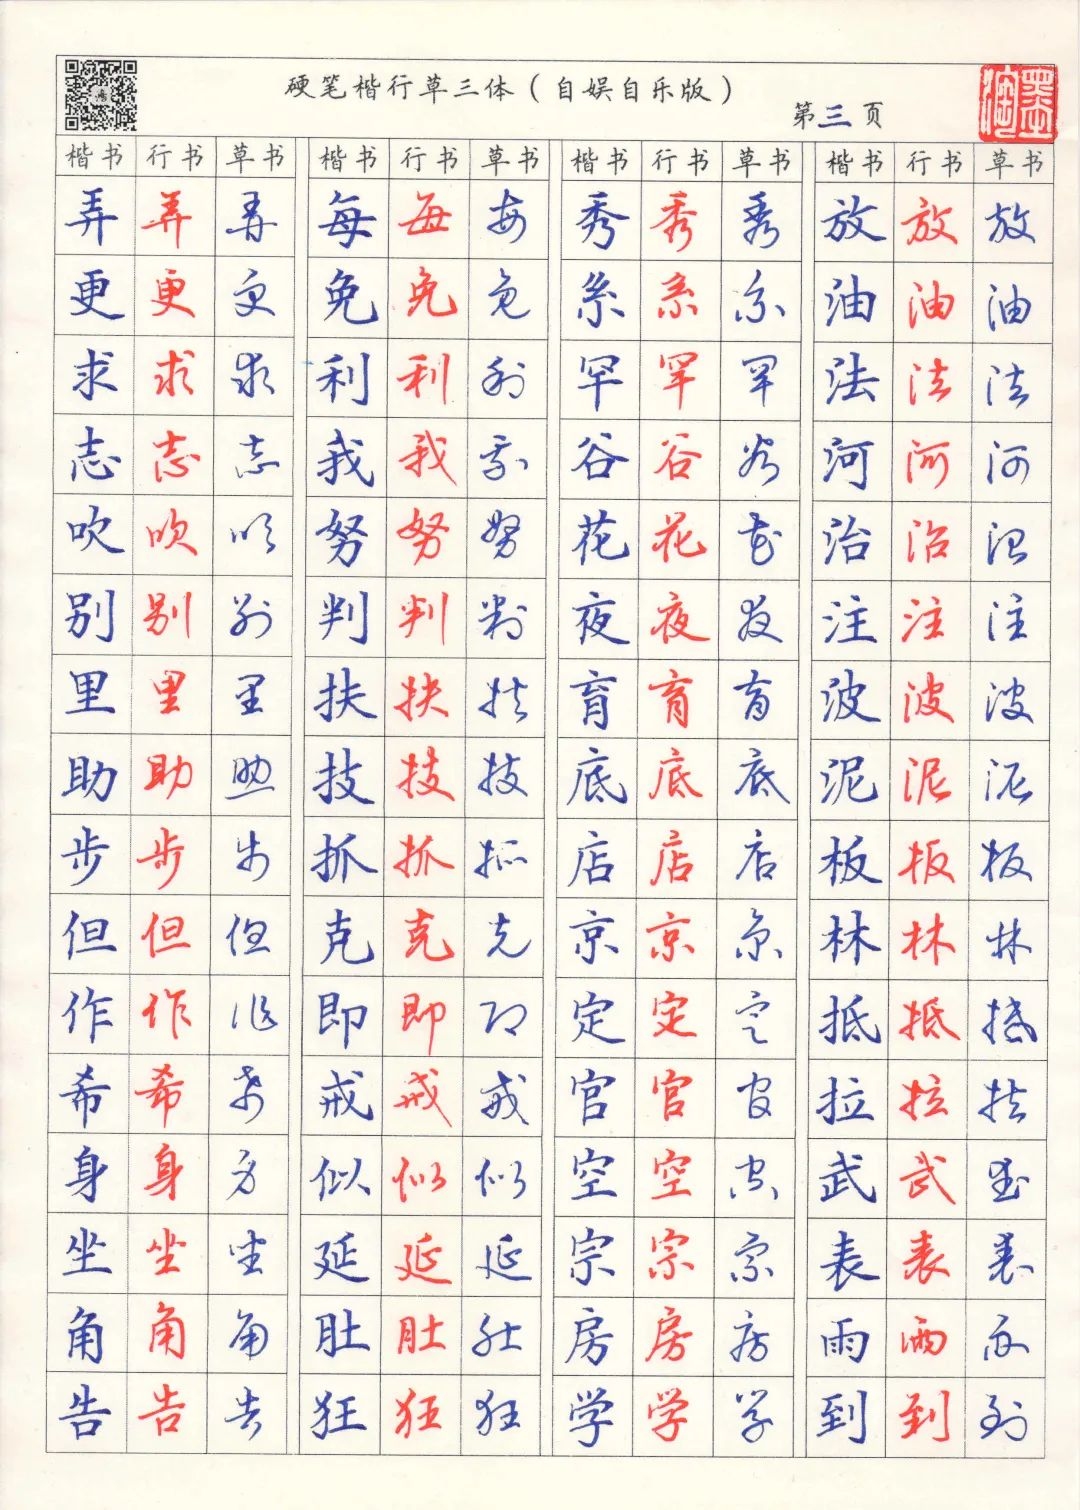 硬笔楷行草三体（自娱自乐版）
第三页
楷书 行书 草书 楷书 行书 草书 楷书 行书 草书 楷书 行书 草书
弄 弄 弄 每 每 每 秀 秀 秀 放 放 放
更 更 更 免 免 免 系 系 系 油 油 油
求 求 求 利 利 利 罕 罕 罕 法 法 法
志 志 志 我 我 我 谷 谷 谷 河 河 河
吹 吹 吹 努 努 努 花 花 花 治 治 治
别 别 别 判 判 判 夜 夜 夜 注 注 注
里 里 里 扶 扶 扶 育 育 育 波 波 波
助 助 助 技 技 技 底 底 底 泥 泥 泥
步 步 步 抓 抓 抓 店 店 店 板 板 板
但 但 但 克 克 克 京 京 京 林 林 林
作 作 作 即 即 即 定 定 定 抵 抵 抵
希 希 希 戒 戒 戒 官 官 官 拉 拉 拉
身 身 身 似 似 似 空 空 空 武 武 武
坐 坐 坐 延 延 延 宗 宗 宗 表 表 表
角 角 角 肚 肚 肚 房 房 房 雨 雨 雨
告 告 告 狂 狂 狂 学 学 学 到 到 到